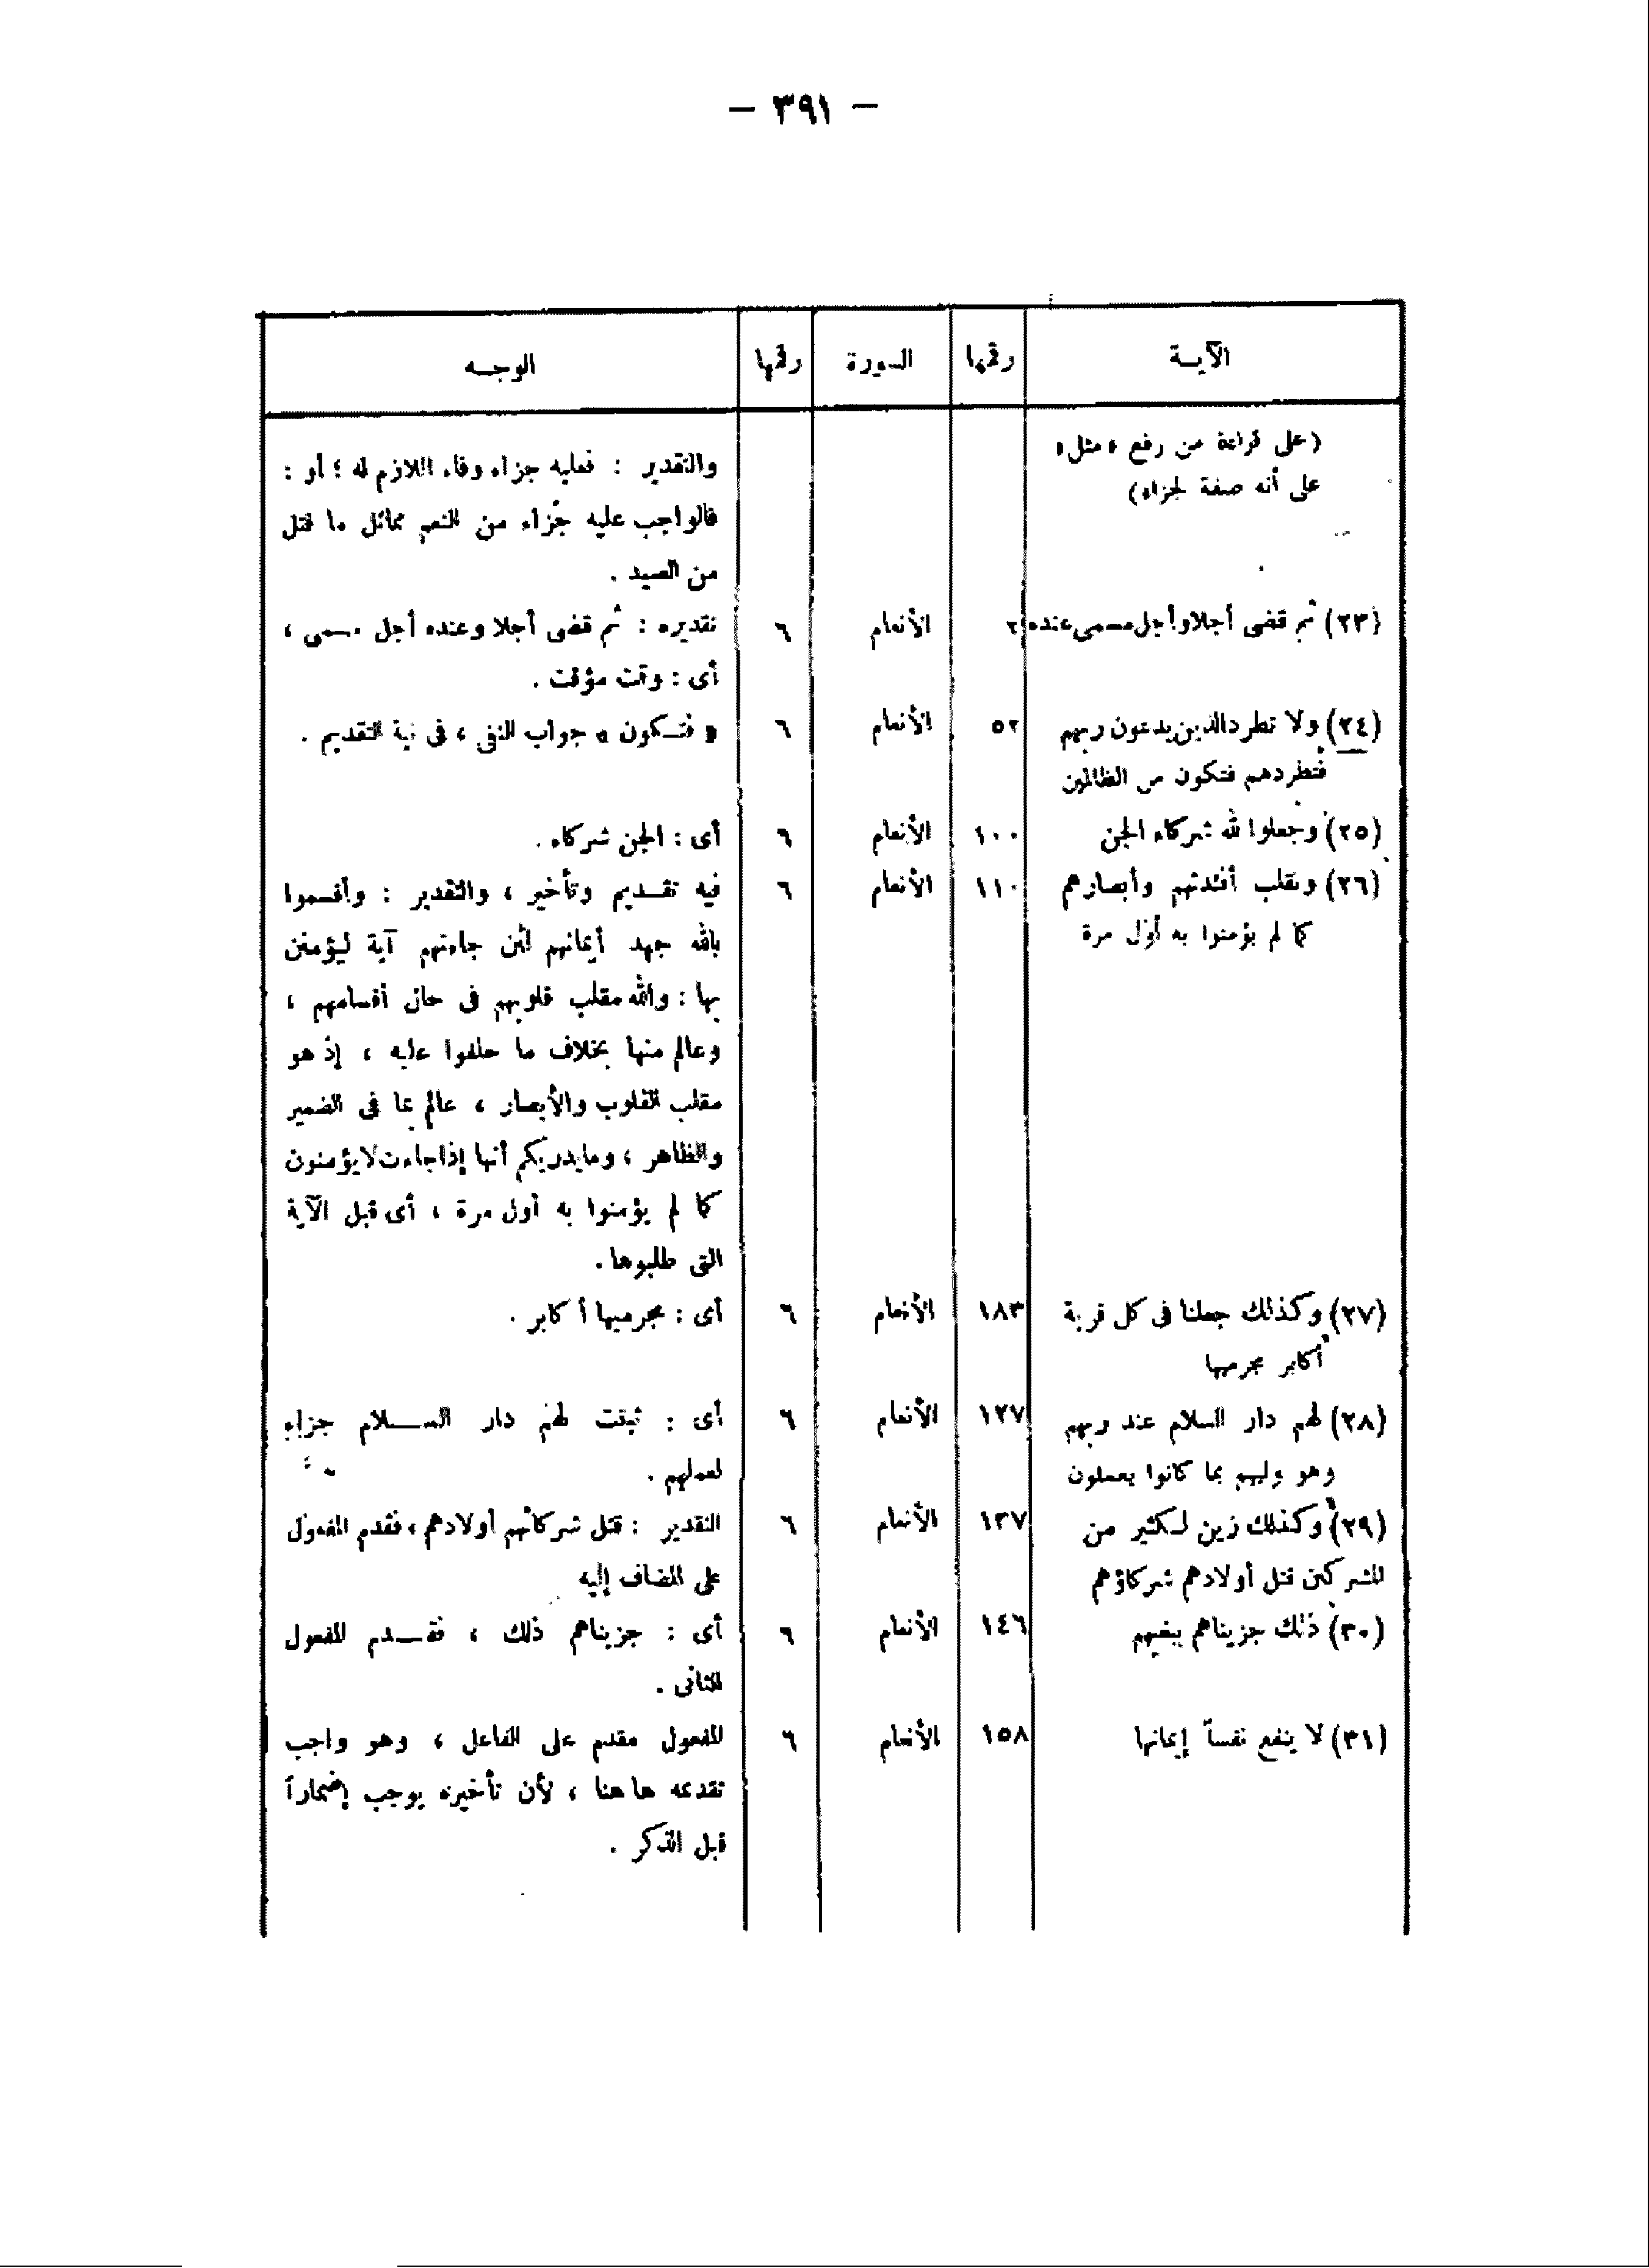 — ٣٩١ —
الآيـة رقمها السورة رقمها الوجـه
(على قراءة من رفع «مثل»
على أنه صفة لجزاء)
والتقدير : فعليه جزاء وفاء اللازم له ؛ أو :
فالواجب عليه جزاء من النعم مماثل ما قتل
من الصيد .
(٢٣) ثم قضى أجلا وأجل مسمى عنده ٢ الأنعام ٦ تقديره : ثم قضى أجلا وعنده أجل مسمى ،
أى : وقت مؤقت .
(٢٤) ولا تطرد الذين يدعون ربهم ٥٢ الأنعام ٦ « فتـكون » جواب النفى ، فى نية التقديم .
فتطردهم فتكون من الظالمين
(٢٥) وجعلوا لله شركاء الجن ١٠٠ الأنعام ٦ أى : الجن شركاء .
(٢٦) ونقلب أفئدتهم وأبصارهم ١١٠ الأنعام ٦ فيه تقـديم وتأخير ، والتقدير : وأقسموا
كما لم يؤمنوا به أول مرة
بالله جهد أيمانهم لئن جاءتهم آية ليؤمنن
بها : والله مقلب قلوبهم فى حال أقسامهم ،
وعالم منها بخلاف ما حلفوا عليه ، إذ هو
مقلب القلوب والأبصار ، عالم بما فى الضمير
والظاهر ، وما يدريكم أنها إذا جاءت لا يؤمنون
كما لم يؤمنوا به أول مرة ، أى قبل الآية
التى طلبوها .
(٢٧) وكذلك جعلنا فى كل قرية ١٨٣ الأنعام ٦ أى : مجرميها أكابر .
أكابر مجرميها
(٢٨) لهم دار السلام عند ربهم ١٢٧ الأنعام ٦ أى : ثبتت لهم دار الســلام جزاء
وهو وليهم بما كانوا يعملون
لعملهم .
(٢٩) وكذلك زين لـكثير من ١٣٧ الأنعام ٦ التقدير : قتل شركائهم أولادهم ، فقدم المفعول
المشركين قتل أولادهم شركاؤهم
على المضاف إليه
(٣٠) ذلك جزيناهم ببغيهم ١٤٦ الأنعام ٦ أى : جزيناهم ذلك ، فقـدم المفعول
الثانى .
(٣١) لا ينفع نفساً إيمانها ١٥٨ الأنعام ٦ المفعول مقدم على الفاعل ، وهو واجب
تقدمه هاهنا ، لأن تأخيره يوجب إضماراً
قبل الذكر .